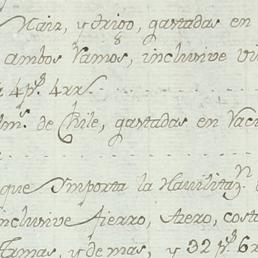 Maiz, y trigo, gastadas en
ambos Ramos, inclusive vi
4 p.s 4 rr.s
m.s de Chile, gastadas en Raci
que Importa la Havilitaz.n
inclusive fierro, Azero, costa
Armas, y demás, y 32 p.s 6 r